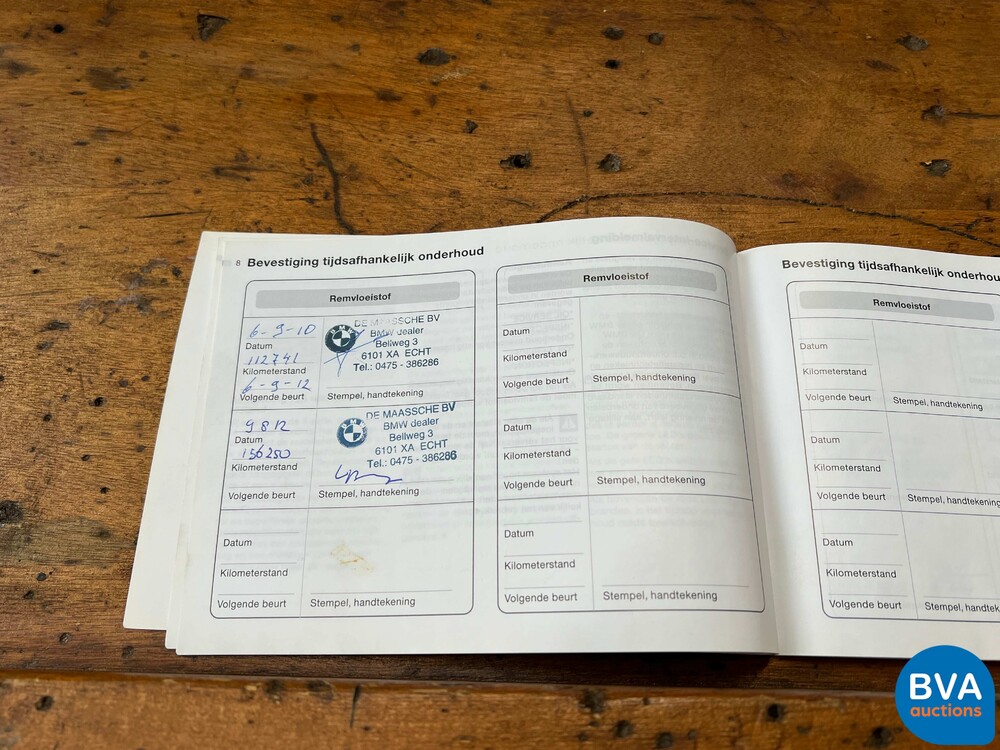 8 Bevestiging tijdsafhankelijk onderhoud
Remvloeistof
6-9-10
Datum
112741
Kilometerstand
6-9-12
Volgende beurt
BMW
DE MAASSCHE BV
BMW dealer
Bellweg 3
6101 XA ECHT
Tel.: 0475 - 386286
Stempel, handtekening
9 8 12
Datum
156250
Kilometerstand
Volgende beurt
BMW
DE MAASSCHE BV
BMW dealer
Bellweg 3
6101 XA ECHT
Tel.: 0475 - 386286
Stempel, handtekening
Datum
Kilometerstand
Volgende beurt
Stempel, handtekening
Remvloeistof
Datum
Kilometerstand
Volgende beurt
Stempel, handtekening
Datum
Kilometerstand
Volgende beurt
Stempel, handtekening
Datum
Kilometerstand
Volgende beurt
Stempel, handtekening
Bevestiging tijdsafhankelijk onderhou
Remvloeistof
Datum
Kilometerstand
Volgende beurt
Stempel, handtekening
Datum
Kilometerstand
Volgende beurt
Stempel, handtekening
Datum
Kilometerstand
Volgende beurt
Stempel, handtek
BVA
auctions